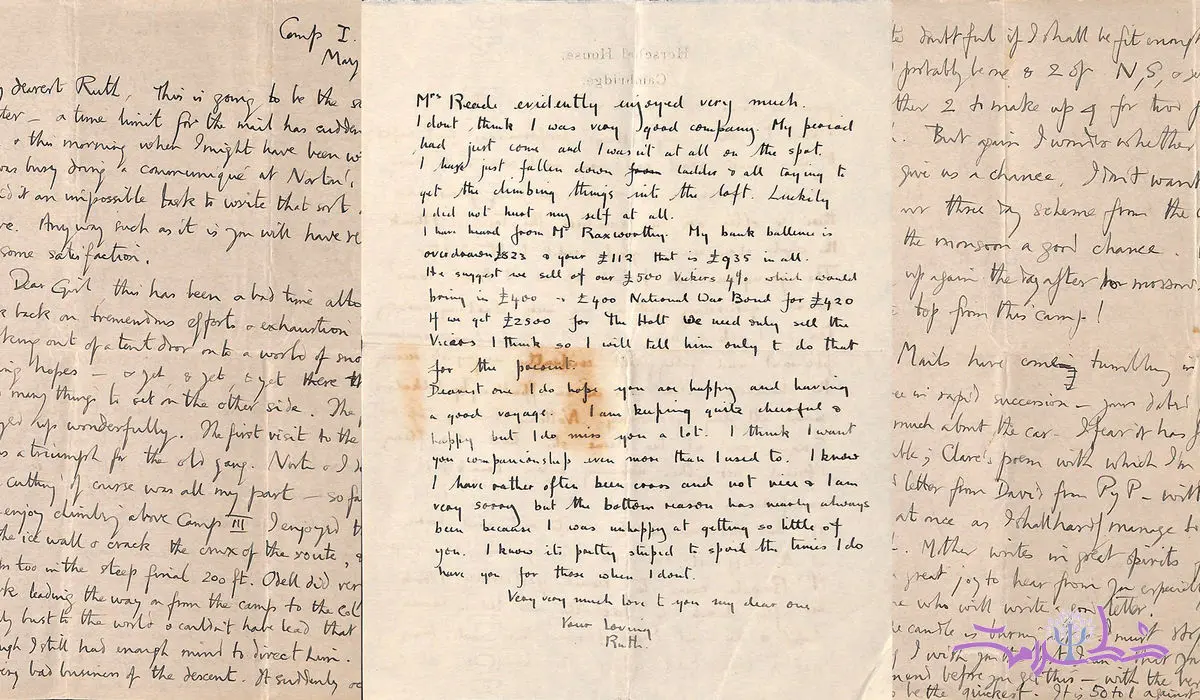 Camp I.
May
dearest Ruth, This is going to be the
a time limit for the mail has
this morning when I might have been
busy doing a communiqué at Norton's
it an impossible task to write that sort
Anyway such as it is you will have
some satisfaction.
Dear Girl, this has been a bad time
back on tremendous efforts & exhaustion
looking out of a tent door onto a world of
hopes — & yet, & yet, & yet there
many things to set on the other side. The
up wonderfully. The first visit to the
a triumph for the old gang. Norton & I
cutting of course was all my part — so
enjoy climbing above Camp III I enjoyed
the ice wall & crack the crux of the route,
too in the steep final 200 ft. Odell did
leading the way on from the camp to the Col
bust to the world & couldn't have lead that
I still had enough mind to direct him.
bad business of the descent. It suddenly
Herschel House,
Cambridge.
Mrs Reade evidently enjoyed very much.
I dont think I was very good company. My peoriod
had just come and I wasn't at all on the spot.
I have just fallen down from ladder & all trying to
get the climbing things into the loft. Luckily
I did not hurt my self at all.
I have heard from Mr Raxworthy. My bank ballence is
overdrawn £823 & your £112 that is £935 in all.
He suggest we sell of our £500 Vickers 4% which would
bring in £400 & £400 National War Bond for £420
If we get £2500 for The Holt We need only sell the
Vicars I think so I will tell him only to do that
for the present.
Dearest one I do hope you are happy and having
a good voyage. I am keeping quite cheerful &
happy but I do miss you a lot. I think I want
you companionship even more than I used to. I know
I have rather often been cross and not nice & I am
very sorry but the bottom reason has nearly always
been because I was unhappy at getting so little of
you. I know its pretty stuped to spoil the times I do
have you for those when I dont.
Very very much love to you my dear one
Your Loving
Ruth.
doubtful if I shall be fit enough
probably be one & 2 of N, S, &
2 to make up 4 for two
But again I wonder whether
give us a chance. I don't want
three day scheme from the
the monsoon a good chance.
up again the day after
top from this camp!
Mails have coming tumbling in
in rapid succession — yours dated
much about the car. I fear it has
Clare's poem with which I'm
letter from David from PyP — with
at once as I shall hardly manage to
Mother writes in great spirits
great joy to hear from you especially
who will write a son letter.
candle is burning I must stop
I wish you
before you get this — with the best
be the quickest. It is 50 to 1 against
خط سلامت